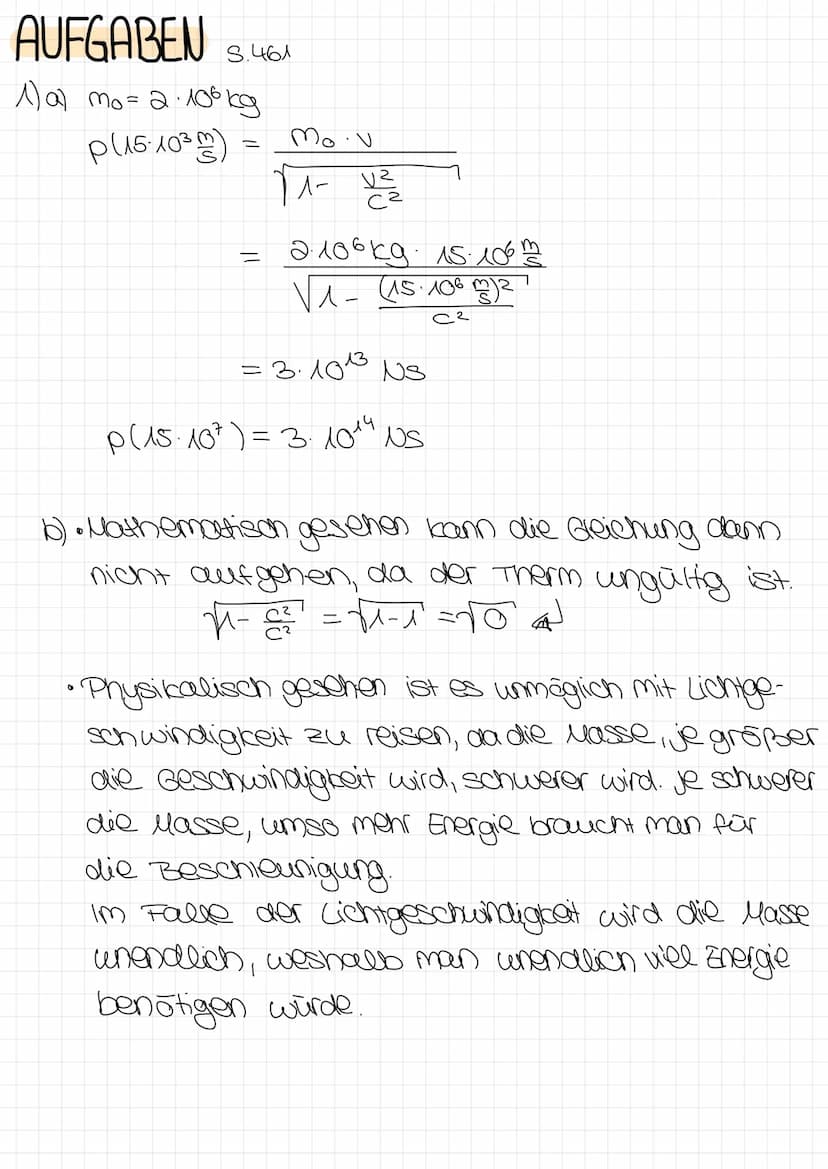 AUFGABEN S.461
1) a) m₀ = 2 · 10⁶ kg
p(15·10³ m/s) = m₀ · v / √(1 - v²/c²)
= 2·10⁶ kg · 15·10⁶ m/s / √(1 - (15·10⁶ m/s)²/c²)
= 3·10¹³ Ns
p(15·10⁷) = 3·10¹⁴ Ns
b) • Mathematisch gesehen kann die Gleichung dann
nicht aufgehen, da der Therm ungültig ist.
√(1 - c²/c²) = √(1-1) = √0 ↯
• Physikalisch gesehen ist es unmöglich mit Lichtge-
schwindigkeit zu reisen, da die Masse, je größer
die Geschwindigkeit wird, schwerer wird. Je schwerer
die Masse, umso mehr Energie braucht man für
die Beschleunigung.
Im Falle der Lichtgeschwindigkeit wird die Masse
unendlich, weshalb man unendlich viel Energie
benötigen würde.